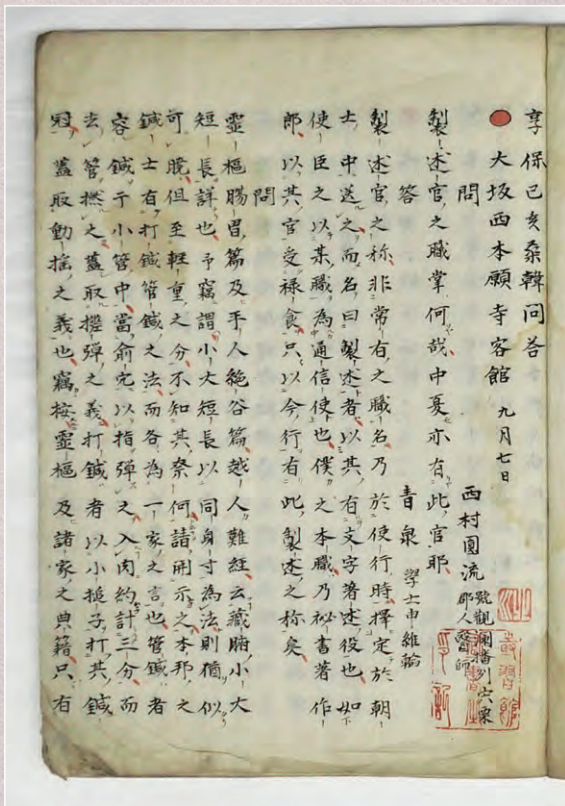 享保己亥桑韓問荅
大坂西本願寺客館 九月七日
問 西村圓流 號觀瀾播列宍粟郡人醫師
製述官之職掌何哉中夏亦有此官耶
答 青泉 學士申維翰
製述官之称非常有之職名乃於使行時擇定於朝
士中送之而名曰製述者以其有文字著述役也如下
使臣之以某職為通信使也僕之本職乃祕書著作
郎以其官受祿食只以今行有此製述之称矣
問
靈樞腸胃篇及平人絶谷篇越人難経云藏腑小大
短長詳也予竊謂小大短長以同身寸為法則猶似
可晚但至輕重之分不知其奈何請開示之本邦之
鍼士有打鍼管鍼之法而各為一家之言也管鍼者
容鍼于小管中當俞穴以指弾之入肉約計三分而
去管撚之蓋取撥弾之義打鍼者以小槌子打其鍼
冠蓋取動揺之義也竊按靈樞及諸家之典籍只有